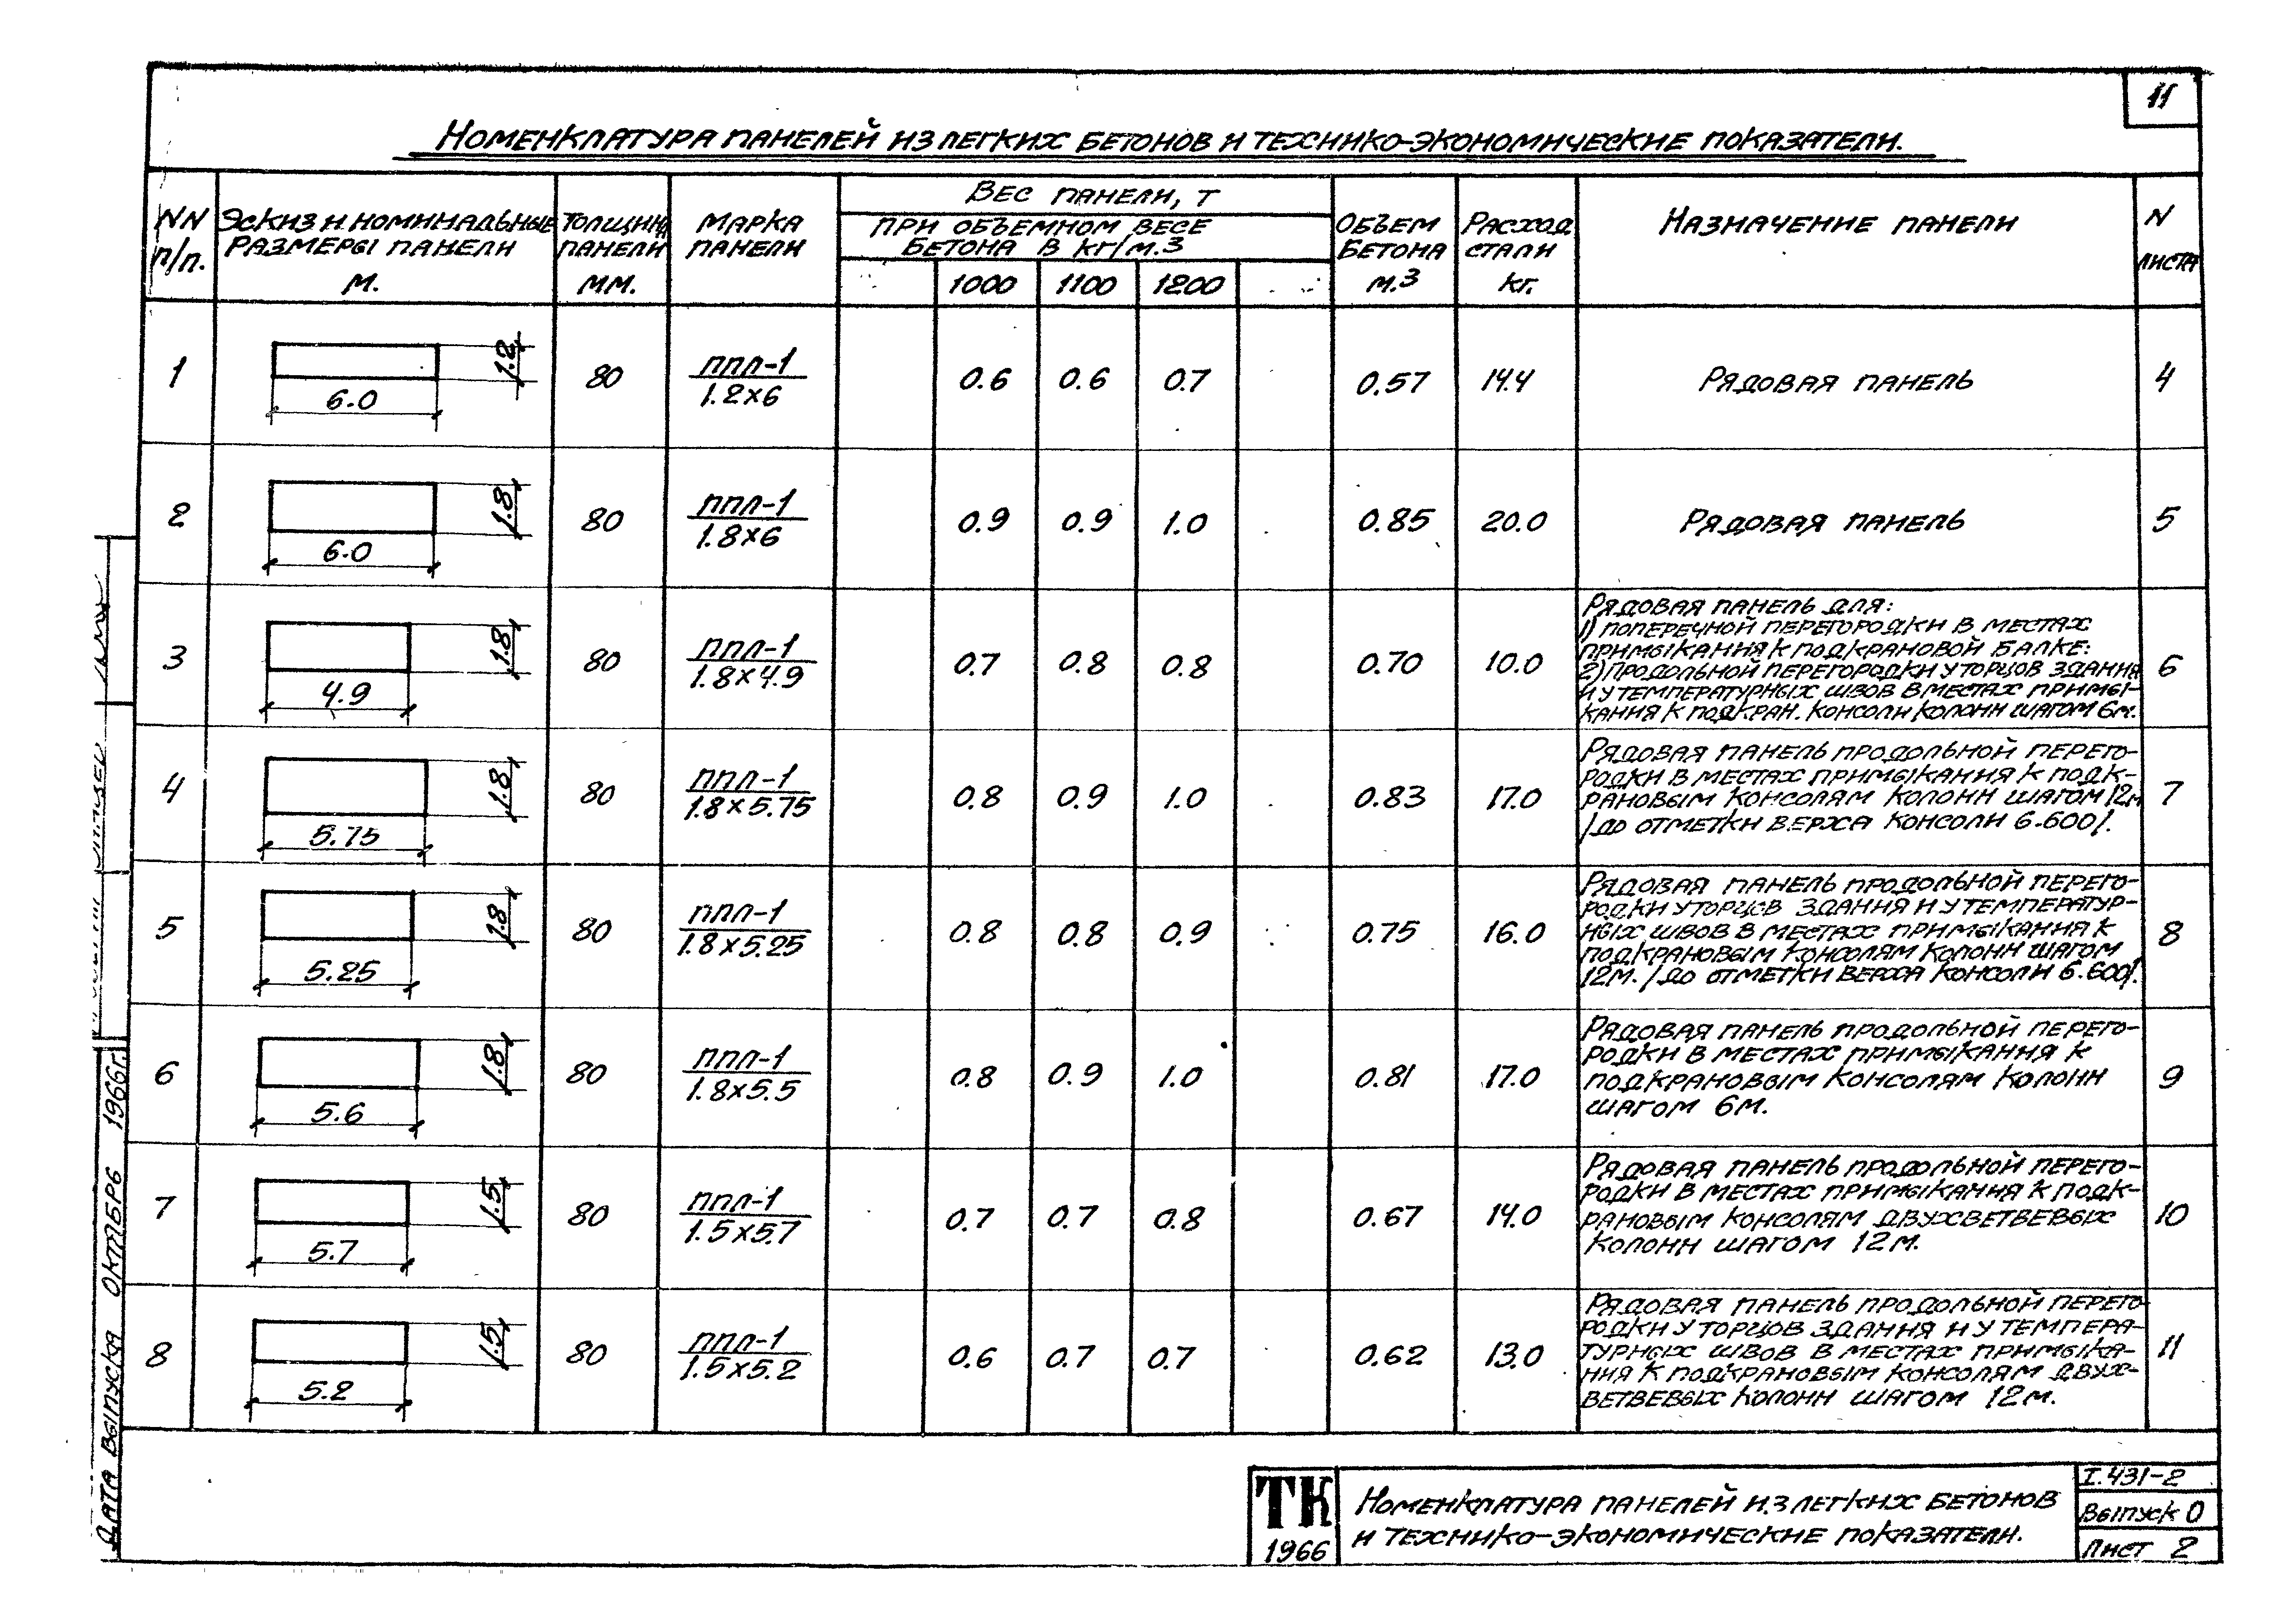 11
Номенклатура панелей из легких бетонов и технико-экономические показатели.
NN п/п.
Эскиз и номинальные размеры панели м.
Толщина панели мм.
Марка панели
Вес панели, т
при объемном весе бетона в кг/м.3
1000 1100 1200
Объем бетона м.3
Расход стали кг.
Назначение панели
N листа
1 6.0 1.2 80 ППЛ-1 / 1.2×6 0.6 0.6 0.7 0.57 14.4 Рядовая панель 4
2 6.0 1.8 80 ППЛ-1 / 1.8×6 0.9 0.9 1.0 0.85 20.0 Рядовая панель 5
3 4.9 1.8 80 ППЛ-1 / 1.8×4.9 0.7 0.8 0.8 0.70 10.0
Рядовая панель для:
1) поперечной перегородки в местах
примыкания к подкрановой балке:
2) продольной перегородки у торцов здания
и у температурных швов в местах примы-
кания к подкран. консоли колонн шагом 6м.
6
4 5.75 1.8 80 ППЛ-1 / 1.8×5.75 0.8 0.9 1.0 0.83 17.0
Рядовая панель продольной перего-
родки в местах примыкания к подк-
рановым консолям колонн шагом 12м
/до отметки верха консоли 6.600/.
7
5 5.25 1.8 80 ППЛ-1 / 1.8×5.25 0.8 0.8 0.9 0.75 16.0
Рядовая панель продольной перего-
родки у торцов здания и у температур-
ных швов в местах примыкания к
подкрановым консолям колонн шагом
12м. /до отметки верха консоли 6.600/.
8
6 5.6 1.8 80 ППЛ-1 / 1.8×5.5 0.8 0.9 1.0 0.81 17.0
Рядовая панель продольной перего-
родки в местах примыкания к
подкрановым консолям колонн
шагом 6м.
9
7 5.7 1.5 80 ППЛ-1 / 1.5×5.7 0.7 0.7 0.8 0.67 14.0
Рядовая панель продольной перего-
родки в местах примыкания к подк-
рановым консолям двухветвевых
колонн шагом 12м.
10
8 5.2 1.5 80 ППЛ-1 / 1.5×5.2 0.6 0.7 0.7 0.62 13.0
Рядовая панель продольной перего
родки у торцов здания и у темпера-
турных швов в местах примыка-
ния к подкрановым консолям двух-
ветвевых колонн шагом 12м.
11
Дата выпуска октябрь 1966г.
ТК
1966
Номенклатура панелей из легких бетонов
и технико-экономические показатели.
I.431-2
Выпуск 0
Лист 2